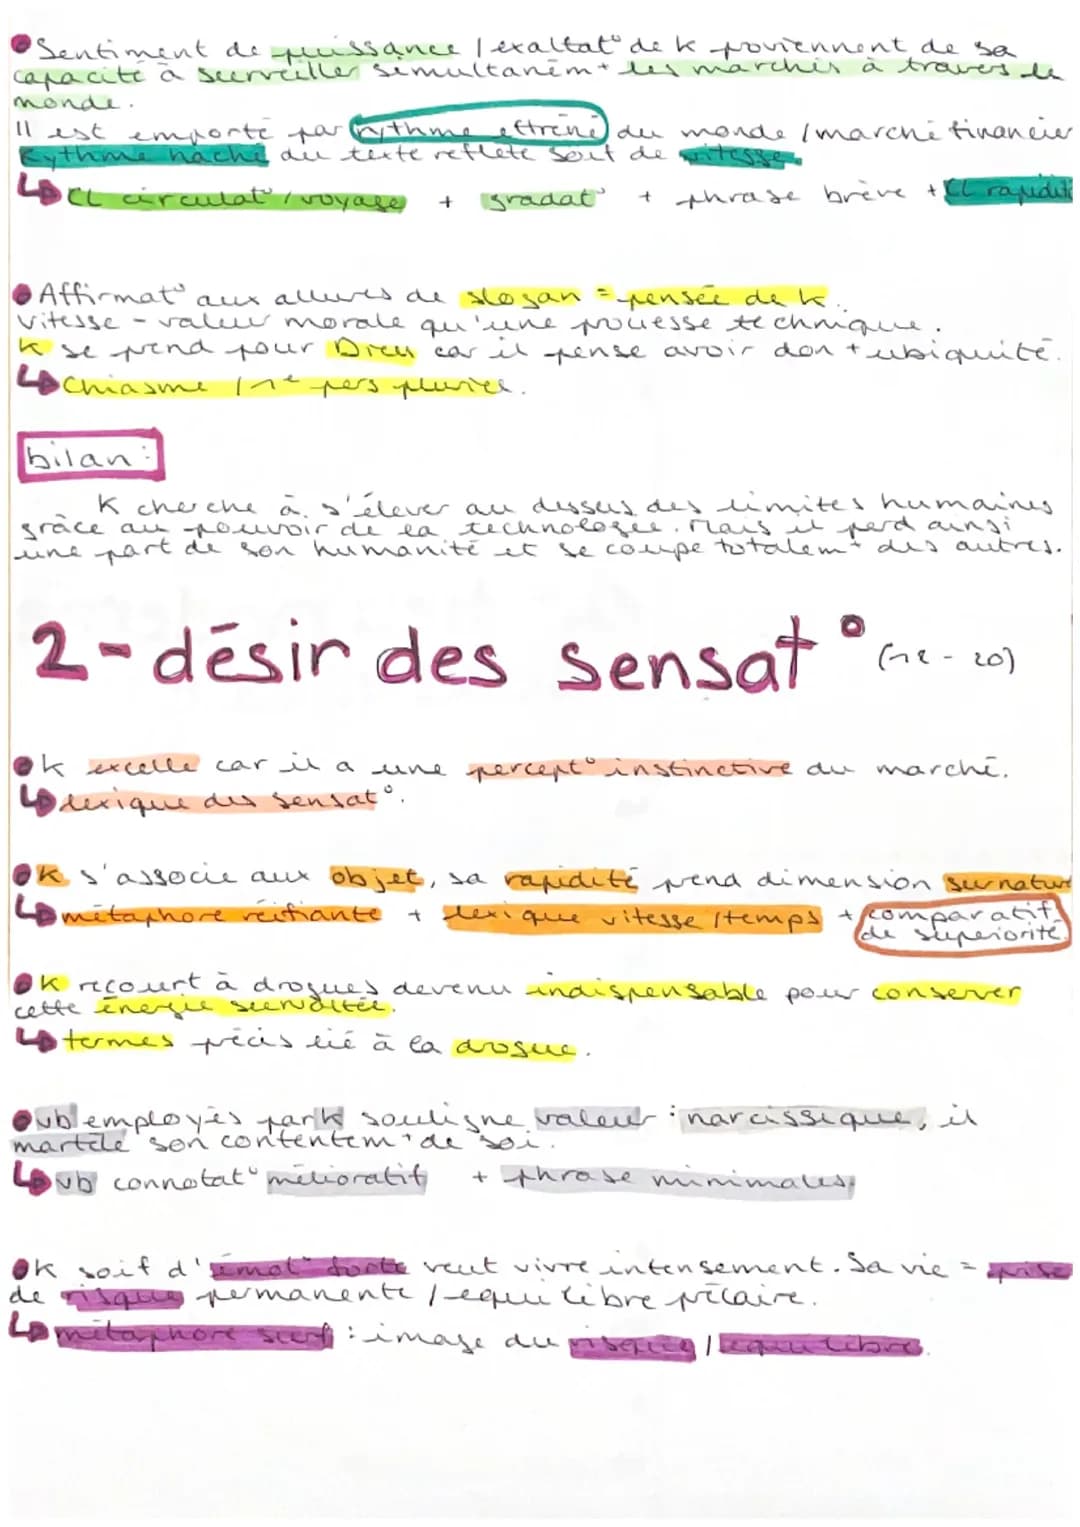 Sentiment de puissance / exaltat° de K poviennent de sa
capacité à surveiller simultaném+ les marchés à travers le
monde.
Il est emporté par rythme effréné du monde / marché financier
Rythme haché du texte reflète soif de vitesse.
↳ CL circulat° / voyage + gradat° + phrase brève + CL rapidité
Affirmat° aux allures de slogan = pensée de K.
Vitesse - valeur morale qu'une prouesse technique.
K se prend pour Dieu car il pense avoir don + ubiquité.
↳ Chiasme / 1e pers pluriel.
bilan :
K cherche à s'élever au dessus des limites humaines
grâce au pouvoir de la technologie. Mais il perd ainsi
une part de son humanité et se coupe totalem+ des autres.
2 - désir des sensat° (12 - 20)
K excelle car il a une percept° instinctive du marché.
↳ lexique des sensat°.
K s'associe aux objet, sa rapidité prend dimension surnature
↳ métaphore réifiante + lexique vitesse / temps + comparatif
de supériorité
K recourt à drogues devenu indispensable pour conserver
cette énergie survoltée.
↳ termes précis lié à la drogue.
vb employés par K souligne valeur : narcissique, il
martèle son contentem+ de soi.
↳ vb connotat° mélioratif + phrase minimales.
K soif d'émot° forte veut vivre intensement. Sa vie = prise
de risque permanente / equilibre précaire.
↳ métaphore surf : image du risque / equilibre.